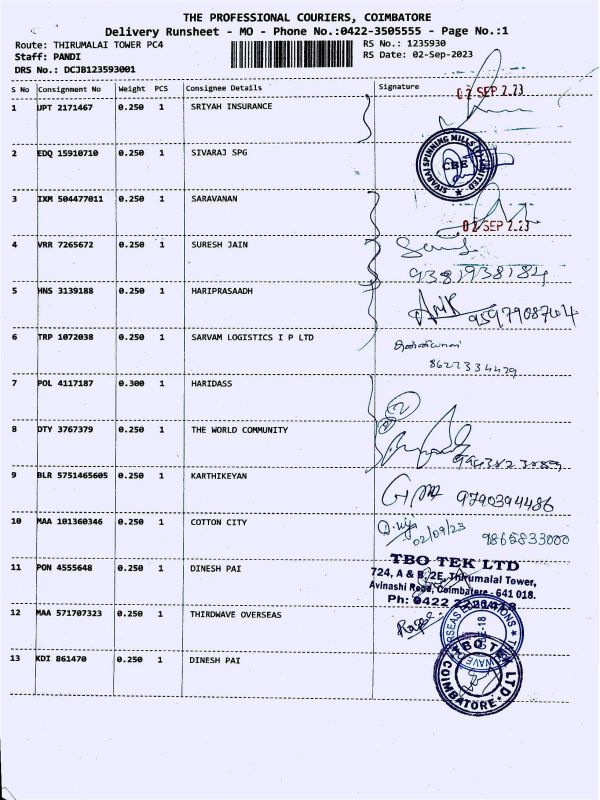 THE PROFESSIONAL COURIERS, COIMBATORE
Delivery Runsheet - MO - Phone No.:0422-3505555 - Page No.:1
Route: THIRUMALAI TOWER PC4
RS No.: 1235930
Staff: PANDI
RS Date: 02-Sep-2023
DRS No.: DCJB123593001
S No Consignment No Weight PCS Consignee Details Signature
02 SEP 2023
1 UPT 2171467 0.250 1 SRIYAH INSURANCE
2 EDQ 15910710 0.250 1 SIVARAJ SPG
SIVARAJ SPINNING MILLS (P) LIMITED
CBE
3 IXM 504477011 0.250 1 SARAVANAN
02 SEP 2023
4 VRR 7265672 0.250 1 SURESH JAIN
9381938184
5 HNS 3139188 0.250 1 HARIPRASAADH
9597908704
6 TRP 1072038 0.250 1 SARVAM LOGISTICS I P LTD
8627334479
7 POL 4117187 0.300 1 HARIDASS
2
8 DTY 3767379 0.250 1 THE WORLD COMMUNITY
9 BLR 5751465605 0.250 1 KARTHIKEYAN
9790394486
10 MAA 101360346 0.250 1 COTTON CITY
02/09/23
9865833000
11 PON 4555648 0.250 1 DINESH PAI
TBO TEK LTD
724, A & B, 2E, Thirumalai Tower,
Avinashi Road, Coimbatore - 641 018.
Ph: 0422
12 MAA 571707323 0.250 1 THIRDWAVE OVERSEAS
13 KDI 861470 0.250 1 DINESH PAI
TBO TEK LTD
COIMBATORE